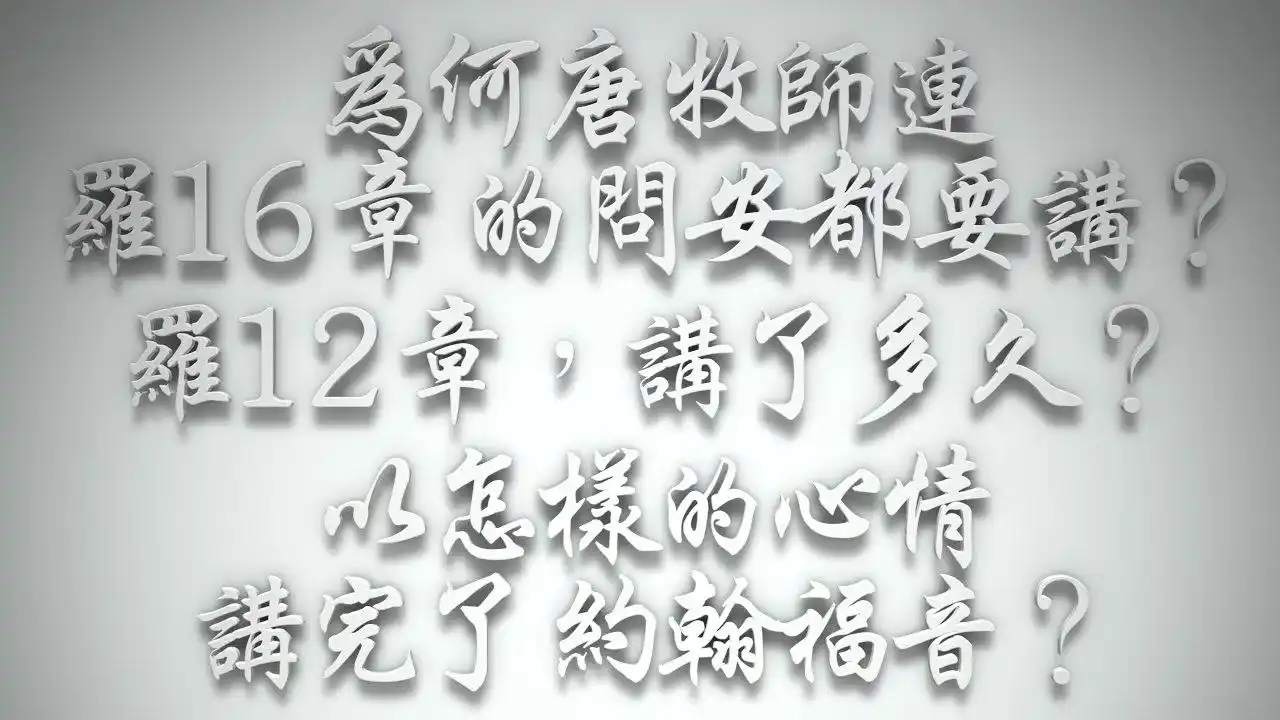 為何唐牧師連
羅16章的問安都要講？
羅12章，講了多久？
以怎樣的心情
講完了約翰福音？